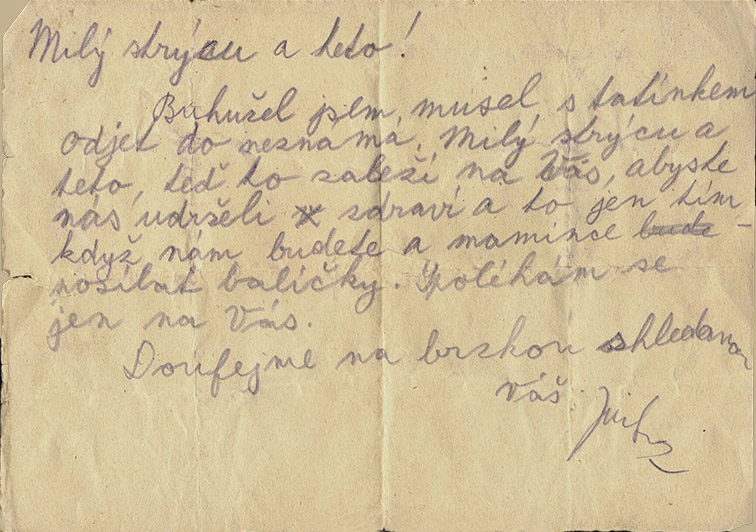 Milý strýcu a teto!
Buhužel jsem, musel s tatínkem
odjet do neznáma. Milý strýcu a
teto, teď to zaleží na Vás, abyste
nás udrželi x zdraví a to jen tím
když nám budete a mamince bude -
posílat balíčky. Spoléhám se
jen na Vás.
Doufejme na brzkou shledanou
Váš